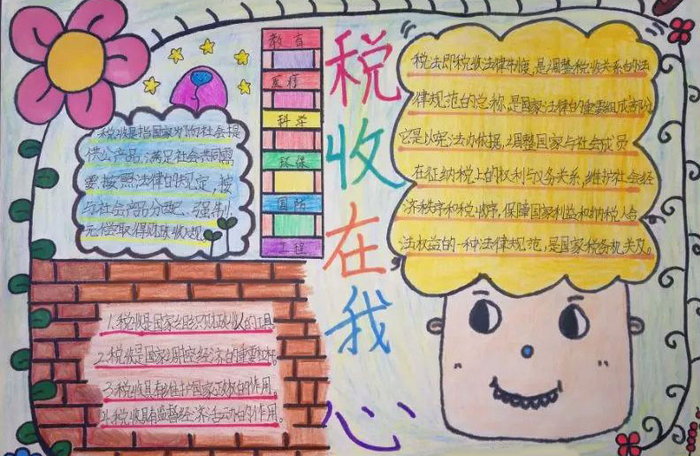 税收在我心
教育
医疗
科学
环保
国防
工程
税收是指国家为向社会提
供公产品,满足社会共同需
要,按照法律的规定,按
与社会产品分配、强制、
无偿取得财政收
税法即税收法律制度,是调整税收关系的法
律规范的总称,是国家法律的重要组成部分,
它是以宪法为依据,调整国家与社会成员
在征纳税上的权利与义务关系,维护社会经
济秩序和税收秩序,保障国家利益和纳税人合
法权益的一种法律规范,是国家税务机关及
1.税收是国家组织财政收入的工具
2.税收是国家调控经济的重要
3.税收具有维护国家政权的作用。
4.税收具有监督经济活动的作用。